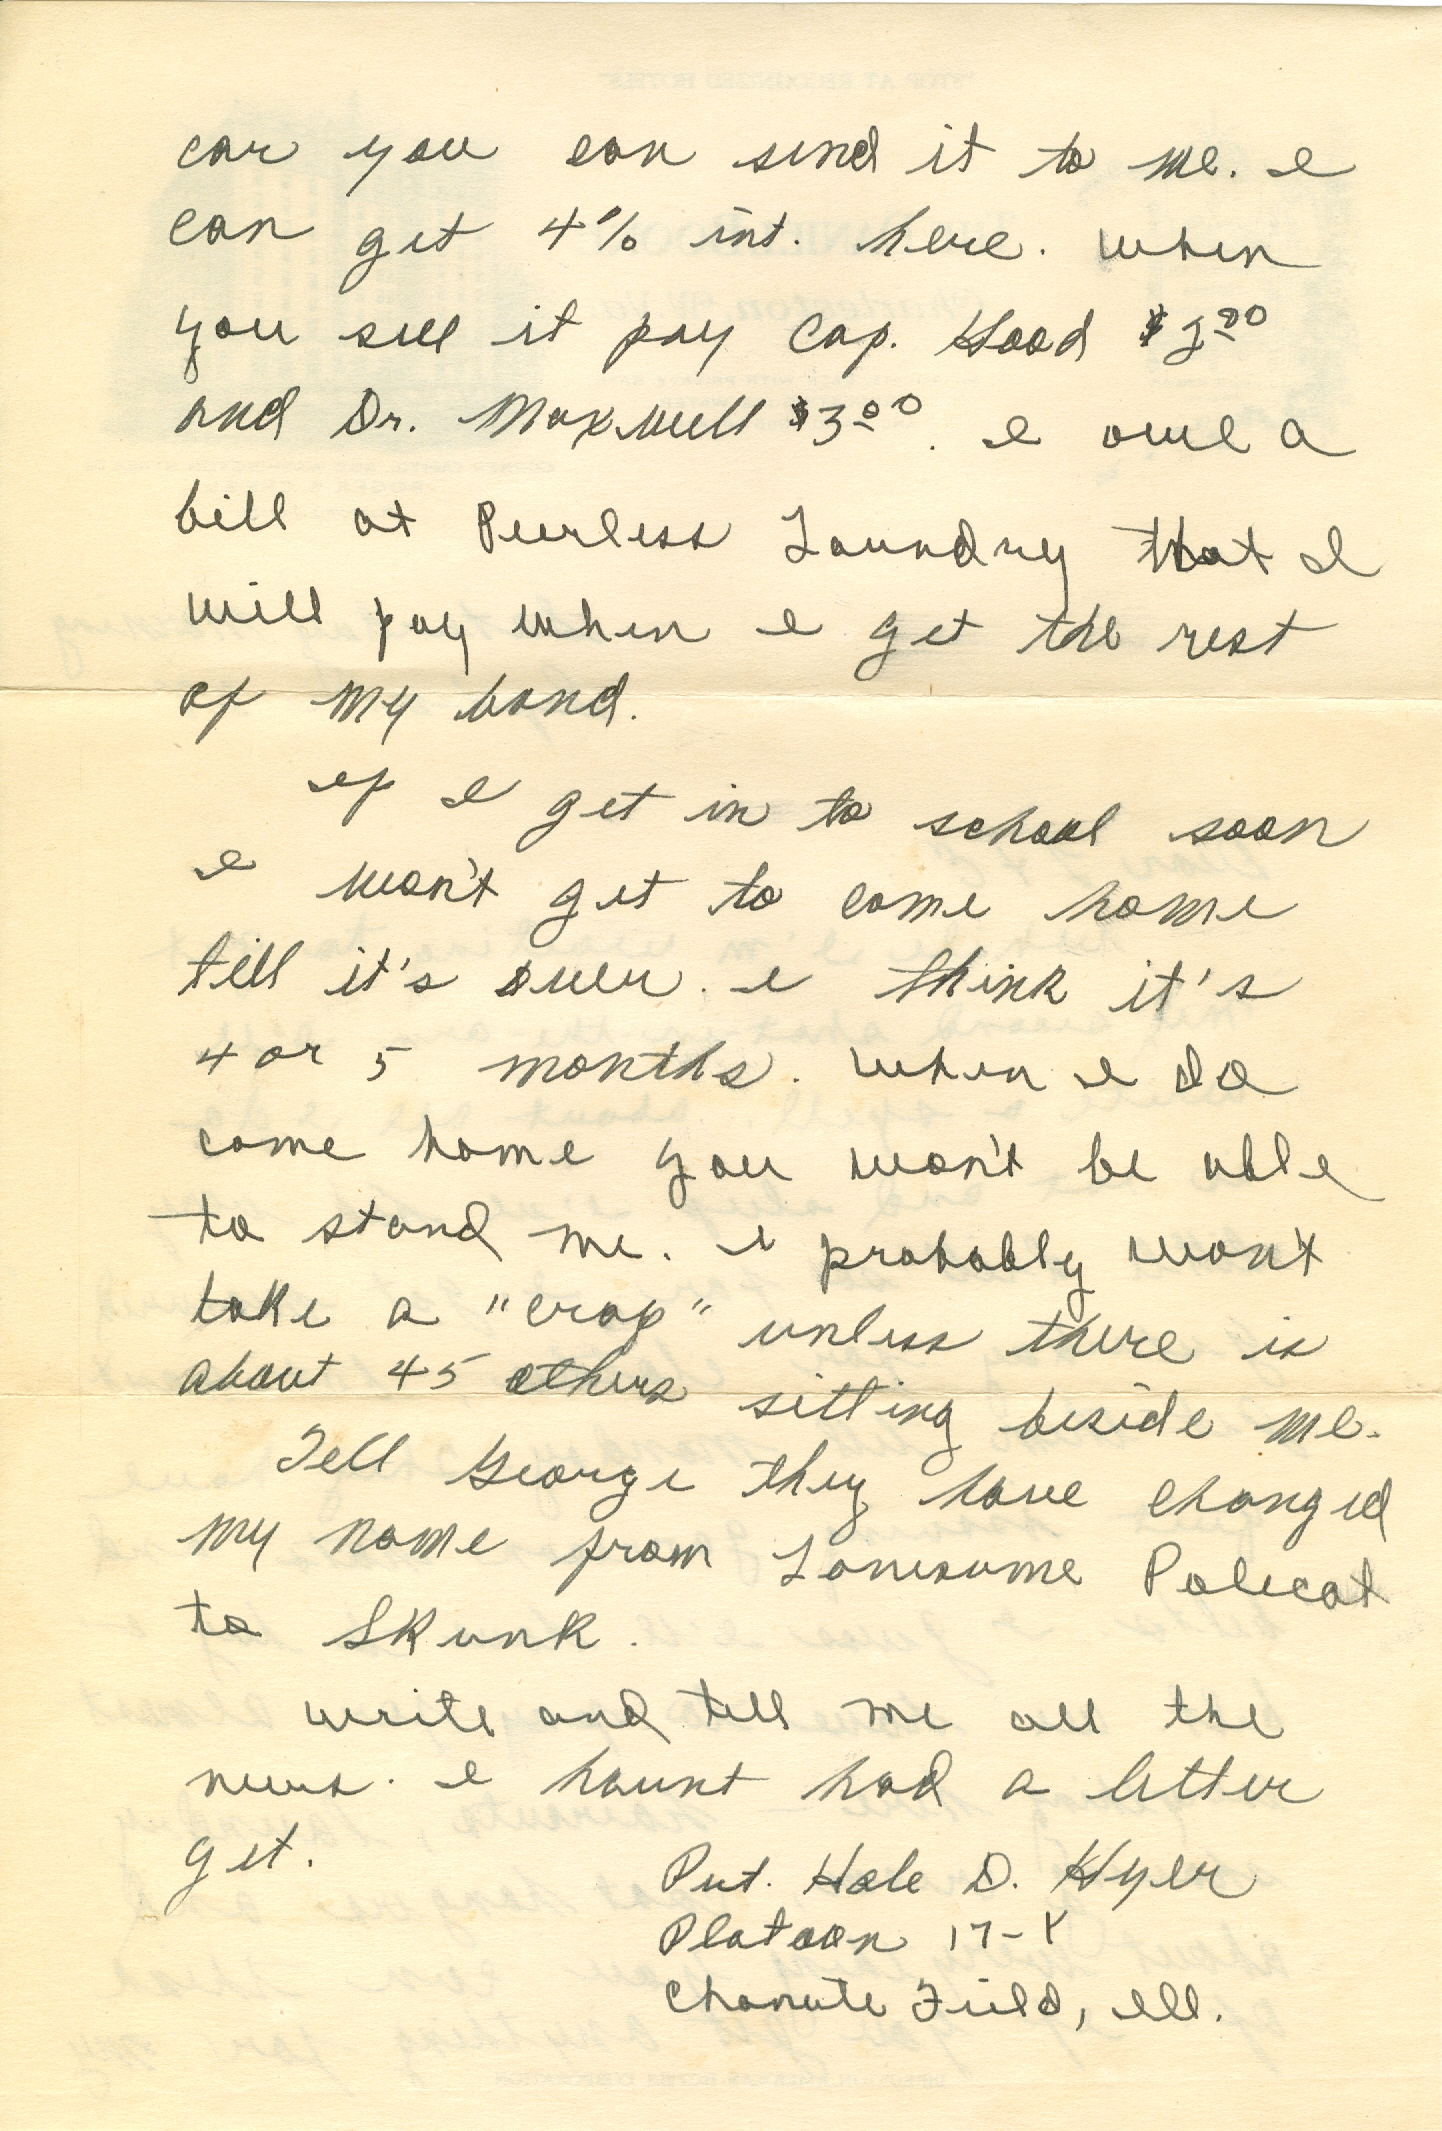 car you can send it to me. I
can get 4% int. here. When
you sell it pay Cap. Hood $2.00
and Dr. Maxwell $3.00. I owe a
bill at Peerless Laundry that I
will pay when I get the rest
of my bond.
If I get in to school soon
I won't get to come home
till it's over. I think it's
4 or 5 months. When I do
come home you won't be able
to stand me. I probably won't
take a "crap" unless there is
about 45 others sitting beside me.
Tell George they have changed
my name from Lonesome Polecat
to Skunk.
Write and tell me all the
news. I havnt had a letter
yet.
Pvt. Hale D. Hyer
Platoon 17-X
Chanute Field, Ill.